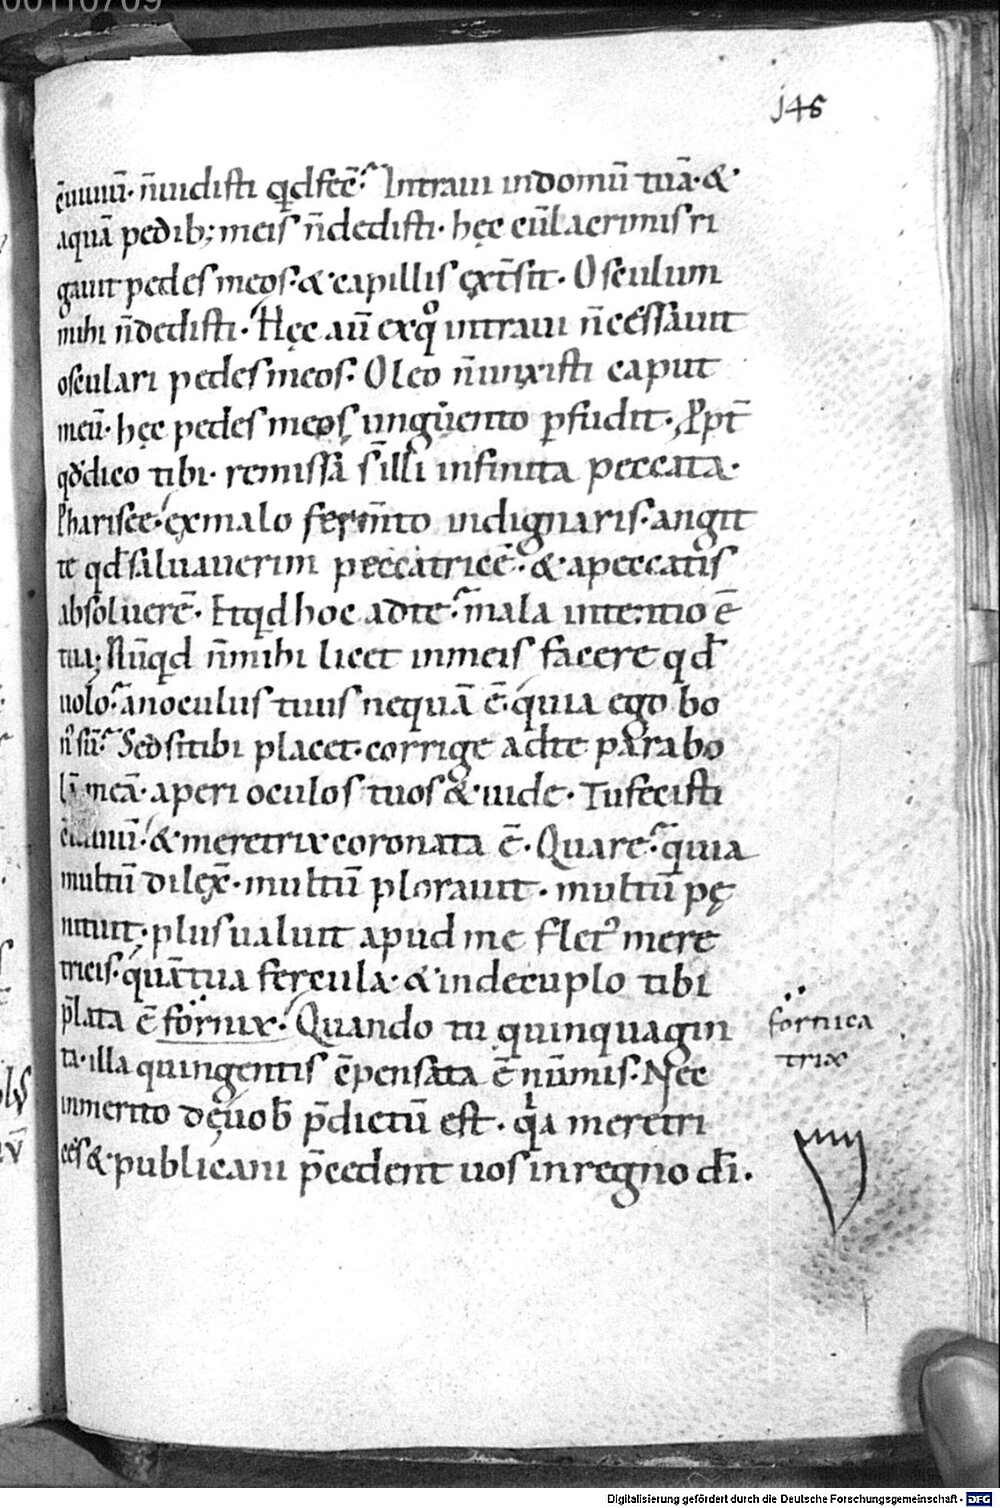 146
ę̄uiuiū· n̄uidisti qͥd fec̄· Intraui indomū tuā·&·
aquā pedib; meis n̄dedisti· hęc eū lacrimis ri
gauit pedes meos·& capillis ext̄sit· Osculum
mihi n̄dedisti· Hęc aū exqͦ intraui n̄cessauit
osculari pedes meos· Oleo n̄unxisti caput
meū· hęc pedes meos ungūento ꝑfudit· Ꝓpt̄
qd̄ dico tibi· remissa s̄ illi infinita peccata·
Pharisee· exmalo ferm̄to indignaris· angit
te qd̄ saluauerim peccatricē·& apeccatis
absoluerē· Etqͥd hoc adte· mala intentio ē
tua; Nūqͥd n̄mihi licet inmeis facere qd̄
uolo· anoculus tuus nequā ē· quia ego bo
nꝰ sū· Sed sitibi placet· corrige adte parabo
lā meā· aperi oculos tuos & uide· Tu fecisti
&meretrix coronata ē· Quare· quia
multū dilex̄· multū plorauit· multū pę
nituit· plus ualuit apud me fletꝰ mere
tricis· quā tua fercula·& indecuplo tibi
p̄lata ē fornix· Quando tu quinquagin
ta· illa quingentis ē pensata ē nūmis· Nec
inmerito dęuob̄ p̄dictū est· qͥa meretri
ces & publicani p̄cedent uos inregno dī·
fornica
trix
Digitalisierung gefördert durch die Deutsche Forschungsgemeinschaft - DFG